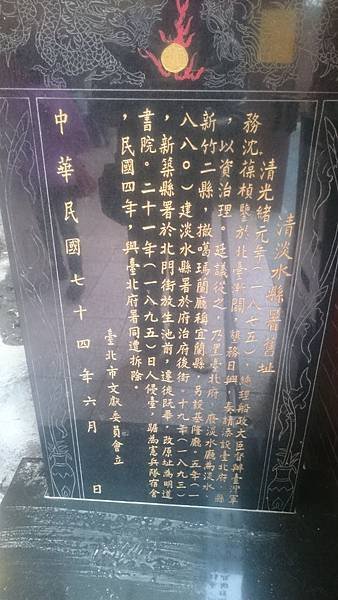 清淡水縣署舊址
清光緒元年(一八七五)，總理船政大臣督辦臺灣軍
務沈葆楨鑒於北臺新闢，墾務日興，奏請添設臺北府、縣
，以資治理。廷議從之，乃置臺北府，廢淡水廳為淡水、
新竹二縣，撤噶瑪蘭廳稱宜蘭縣，另設基隆廳。五年(一
八八〇)建淡水縣署於府治府後街，十九年(一八九三)
，新築縣署於北門街放生池前，遷徙既畢，改原址為明道
書院。二十一年(一八九五)日人侵臺，踞為憲兵隊宿舍
，民國四年，與臺北府署同遭拆除。
臺北市文獻委員會立
中華民國七十四年六月 日